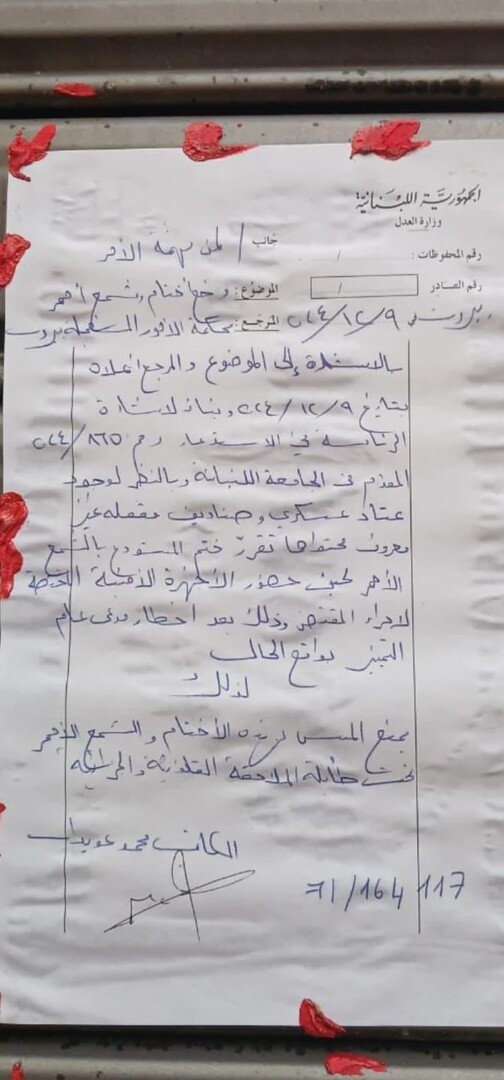 الجمهورية اللبنانية
وزارة العدل
رقم المحفوظات : /
جانب / لمن يهمه الأمر
رقم الصادر /
الموضوع: وضع اختام وشمع احمر
بيروت في ٩/١٢/٢٠٢٤
المرجع: محكمة الامور المستعجلة بيروت
بالاستناد إلى الموضوع والمرجع اعلاه
بتاريخ ٩/١٢/٢٠٢٤ وبناء لاشارة
الرئاسة في الاستدعاء رقم ٨٦٥/٢٠٢٤
المقدم من الجامعة اللبنانية وبالنظر لوجود
عتاد عسكري وصناديق مقفله غير
معروف محتواها تقرر ختم المستودع بالشمع
الأحمر لحين حضور الأجهزة الأمنية المختصة
لاجراء المقتضى وذلك بعد اخطار مدعي عام
التمييز بواقع الحال
لذلك
يمنع المس بهذه الأختام والشمع الأحمر
تحت طائلة الملاحقة القانونية والجزائية
الكاتب محمد عويدات
71/164 117